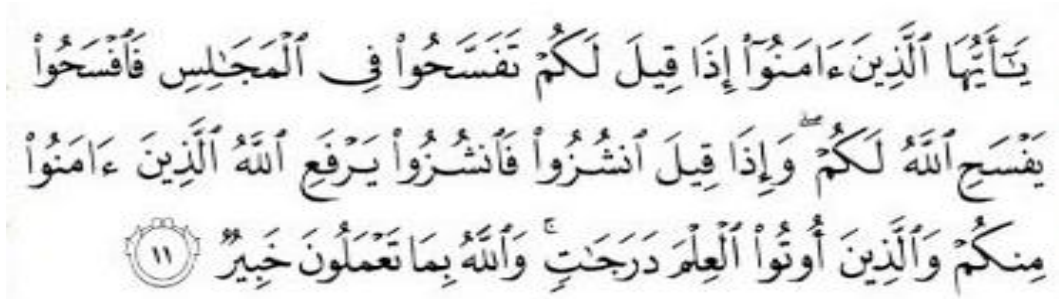 يَٰٓأَيُّهَا ٱلَّذِينَ ءَامَنُوٓاْ إِذَا قِيلَ لَكُمۡ تَفَسَّحُواْ فِي ٱلۡمَجَٰلِسِ فَٱفۡسَحُواْ
يَفۡسَحِ ٱللَّهُ لَكُمۡۖ وَإِذَا قِيلَ ٱنشُزُواْ فَٱنشُزُواْ يَرۡفَعِ ٱللَّهُ ٱلَّذِينَ ءَامَنُواْ
مِنكُمۡ وَٱلَّذِينَ أُوتُواْ ٱلۡعِلۡمَ دَرَجَٰتٖۚ وَٱللَّهُ بِمَا تَعۡمَلُونَ خَبِيرٞ ١١